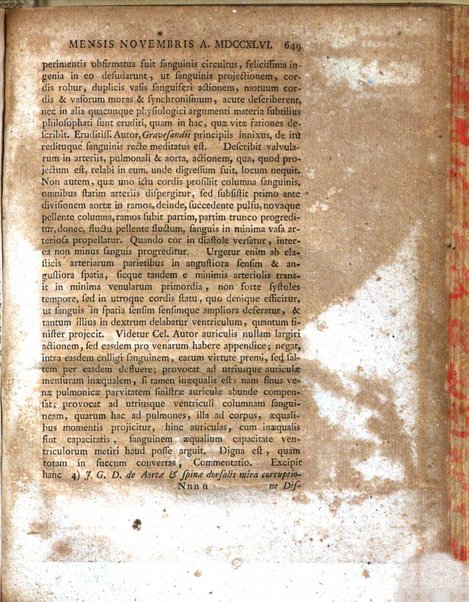 MENSIS NOVEMBRIS A. MDCCXLVI. 649
perimentis obfirmatus fuit sanguinis circuitus, felicissima in-
genia in eo desudarunt, ut sanguinis projectionem, cor-
dis robur, duplicis vasis sanguiferi actionem, motuum cor-
dis & vasorum moras & synchronismum, acute describerent,
nec in alia quacunque physiologici argumenti materia subtilius
philosophati sunt eruditi, quam in hac, quæ vitæ rationes de-
scribit. Eruditiss. Autor, Gravesandii principiis innixus, de itu
redituque sanguinis recte meditatus est. Describit valvula-
rum in arteriis, pulmonali & aorta, actionem, qua, quod pro-
jectum est, relabi in eum, unde digressum fuit, locum nequit.
Non autem, quæ uno ictu cordis prosiliit columna sanguinis,
omnibus statim arteriis dispergitur, sed subsistit primo ante
divisionem aortæ in ramos, deinde, succedente pulsu, novaque
pellente columna, ramos subit partim, partim trunco progredi-
tur, donec, fluctu pellente fluctum, sanguis in minima vasa ar-
teriosa propellatur. Quando cor in diastole versatur, inter-
ea non minus sanguis progreditur. Urgetur enim ab ela-
sticis arteriarum parietibus in angustiora sensim & an-
gustiora spatia, sicque tandem e minimis arteriolis trans-
it in minima venularum primordia, non forte systoles
tempore, sed in utroque cordis statu, quo denique efficitur,
ut sanguis in spatia sensim sensimque ampliora deseratur, &
tantum illius in dextrum delabatur ventriculum, quantum si-
nister projecit. Videtur Cel. Autor auriculis nullam largiri
actionem, sed easdem pro venarum habere appendice; negat,
intra easdem colligi sanguinem, earum virtute premi, sed sal-
tem per easdem defluere; provocat ad utriusque auriculæ
mensuram inæqualem, si tamen inæqualis est: nam sinus ve-
næ pulmonicæ parvitatem sinistræ auriculæ abunde compen-
sat; provocat ad utriusque ventriculi columnam sangui-
neam, quarum hac ad pulmones, illa ad corpus, æquali-
bus momentis projicitur, hinc auriculas, cum inæqualis
sint capacitatis, sanguinem æqualium capacitate ven-
triculorum metiri haud posse arguit. Digna est, quam
totam in succum convertas, Commentatio. Excipit
hanc 4) J. G. D. de Aortæ & spinæ dorsalis mira corruptio-
Nnnn ne Dis-